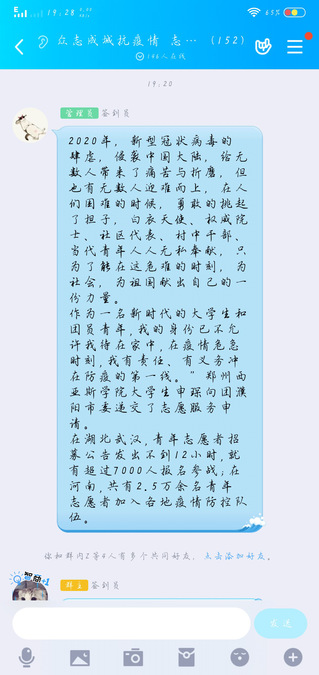 19:28
65%
众志成城抗疫情 志… (152)
148人在线
19:20
管理员 签到员
2020年，新型冠状病毒的
肆虐，侵袭中国大陆，给无
数人带来了痛苦与折磨，但
也有无数人迎难而上，在人
们困难的时候，勇敢的挑起
了担子，白衣天使、权威院
士、社区代表、村中干部、
当代青年人人无私奉献，只
为了能在这危难的时刻，为
社会，为祖国献出自己的一
份力量。
作为一名新时代的大学生和
团员青年,我的身份已不允
许我待在家中,在疫情危急
时刻,我有责任、有义务冲
在防疫的第一线。”郑州西
亚斯学院大学生申琛向团濮
阳市委递交了志愿服务申
请。
在湖北武汉,青年志愿者招
募公告发出不到12小时,就
有超过7000人报名参战;在
河南,共有2.5万余名青年
志愿者加入各地疫情防控队
伍。
你和群内2等4人有多个共同好友，点击添加好友。
群主 签到员
发送